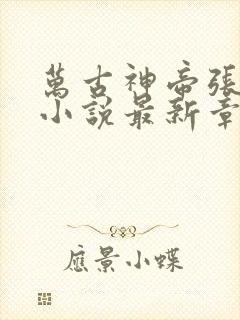 萬古神帝張
小說最新章
應景小蝶